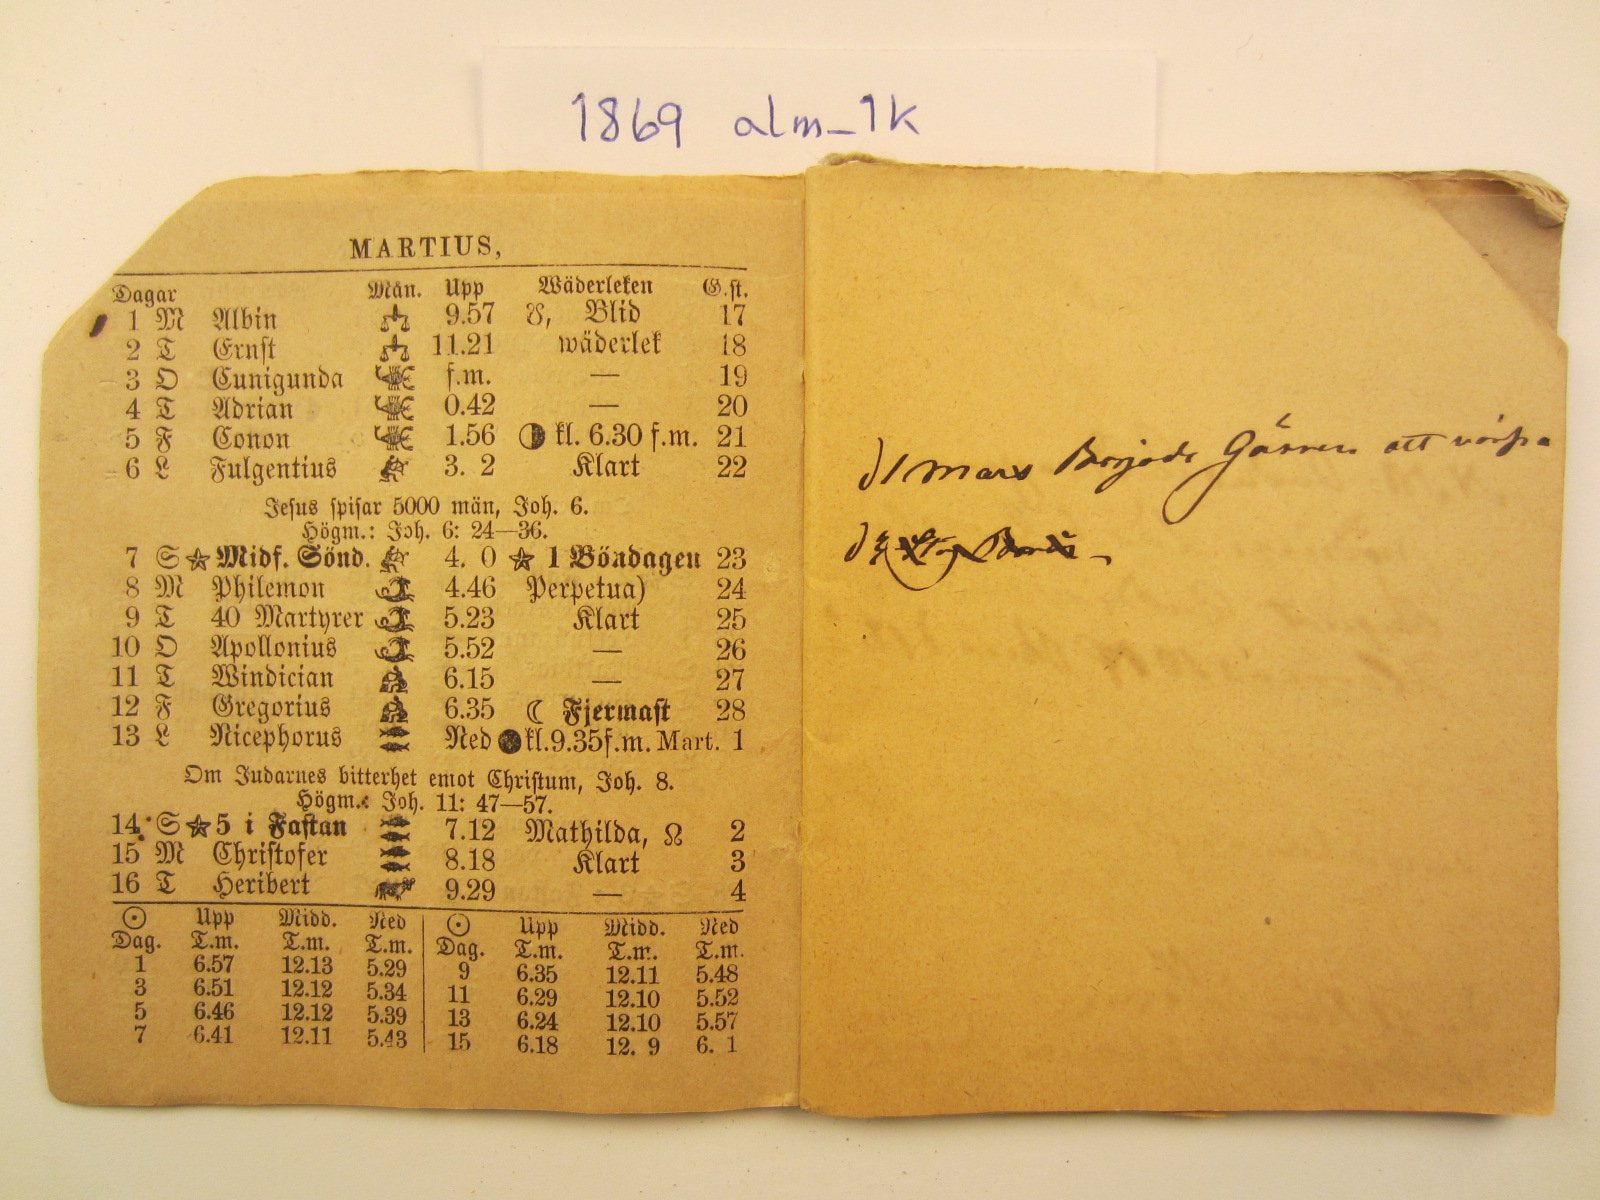 1869 alm_1k
MARTIUS,
Dagar Mån. Upp Wäderleken G.st.
1 M Albin 9.57 ☋, Blid 17
2 T Ernst 11.21 wäderlek 18
3 O Cunigunda f.m. — 19
4 T Adrian 0.42 — 20
5 F Conon 1.56 kl. 6.30 f.m. 21
6 L Fulgentius 3. 2 Klart 22
Jesus spisar 5000 män, Joh. 6.
Högm.: Joh. 6: 24—36.
7 S ☆ Midf. Sönd. 4. 0 ☆ 1 Böndagen 23
8 M Philemon 4.46 Perpetua) 24
9 T 40 Martyrer 5.23 Klart 25
10 O Apollonius 5.52 — 26
11 T Windician 6.15 — 27
12 F Gregorius 6.35 ☾ Fjermast 28
13 L Nicephorus Ned ● kl.9.35f.m. Mart. 1
Om Judarnes bitterhet emot Christum, Joh. 8.
Högm.: Joh. 11: 47—57.
14 S ☆ 5 i Fastan 7.12 Mathilda, ☊ 2
15 M Christofer 8.18 Klart 3
16 T Heribert 9.29 — 4
☉ Upp Midd. Ned ☉ Upp Midd. Ned
Dag. T.m. T.m. T.m. Dag. T.m. T.m. T.m.
1 6.57 12.13 5.29 9 6.35 12.11 5.48
3 6.51 12.12 5.34 11 6.29 12.10 5.52
5 6.46 12.12 5.39 13 6.24 12.10 5.57
7 6.41 12.11 5.43 15 6.18 12. 9 6. 1
d 1 Mars Började Gässen att värpa